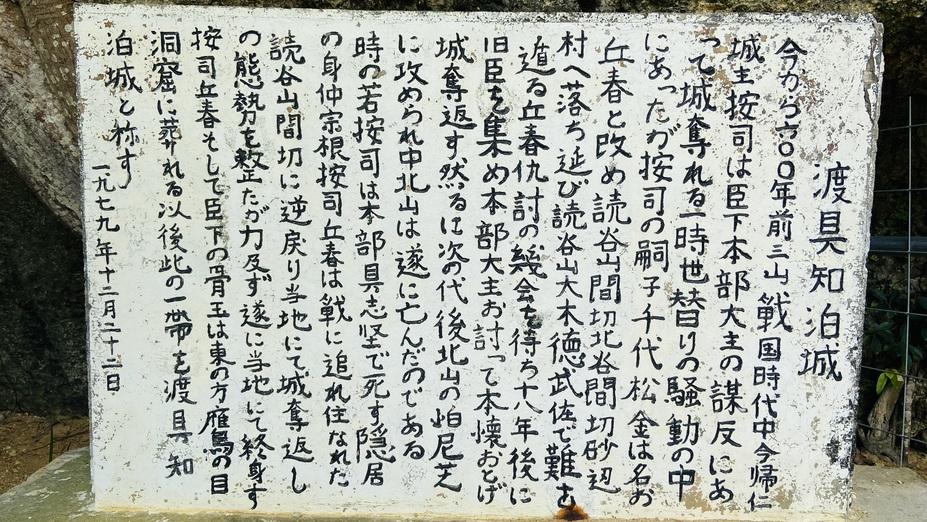 渡具知泊城
今から六〇〇年前三山戦国時代中今帰仁
城主按司は臣下本部大主の謀反にあ
って城奪れる一時世替りの騒動の中
にあったが按司の嗣子千代松金は名お
丘春と改め読谷山間切北谷間切砂辺
村へ落ち延び読谷山大木徳武佐で難を
遁る丘春仇討の幾会を待ち十八年後に
旧臣を集め本部大主お討って本懐おとげ
城奪返す然るに次の代後北山の怕尼芝
に攻められ中北山は遂に亡んだのである
時の若按司は本部具志堅で死す隠居
の身仲宗根按司丘春は戦に追れ住なれた
読谷山間切に逆戻り当地にて城奪返し
の態勢を整たが力及ず遂に当地にて終身す
按司丘春そして臣下の骨玉は東の方雁鳥の目
洞窟に葬れる以後此の一帯を渡具知
泊城と称す
一九七九年十二月二十二日